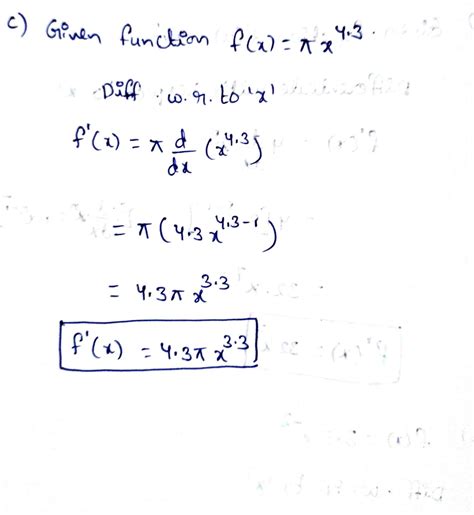 c) Given function f(x) = π x^4.3.
Diff. w.r. to 'x'
f'(x) = π d/dx (x^4.3)
= π(4.3 x^4.3-1)
= 4.3π x^3.3
f'(x) = 4.3π x^3.3